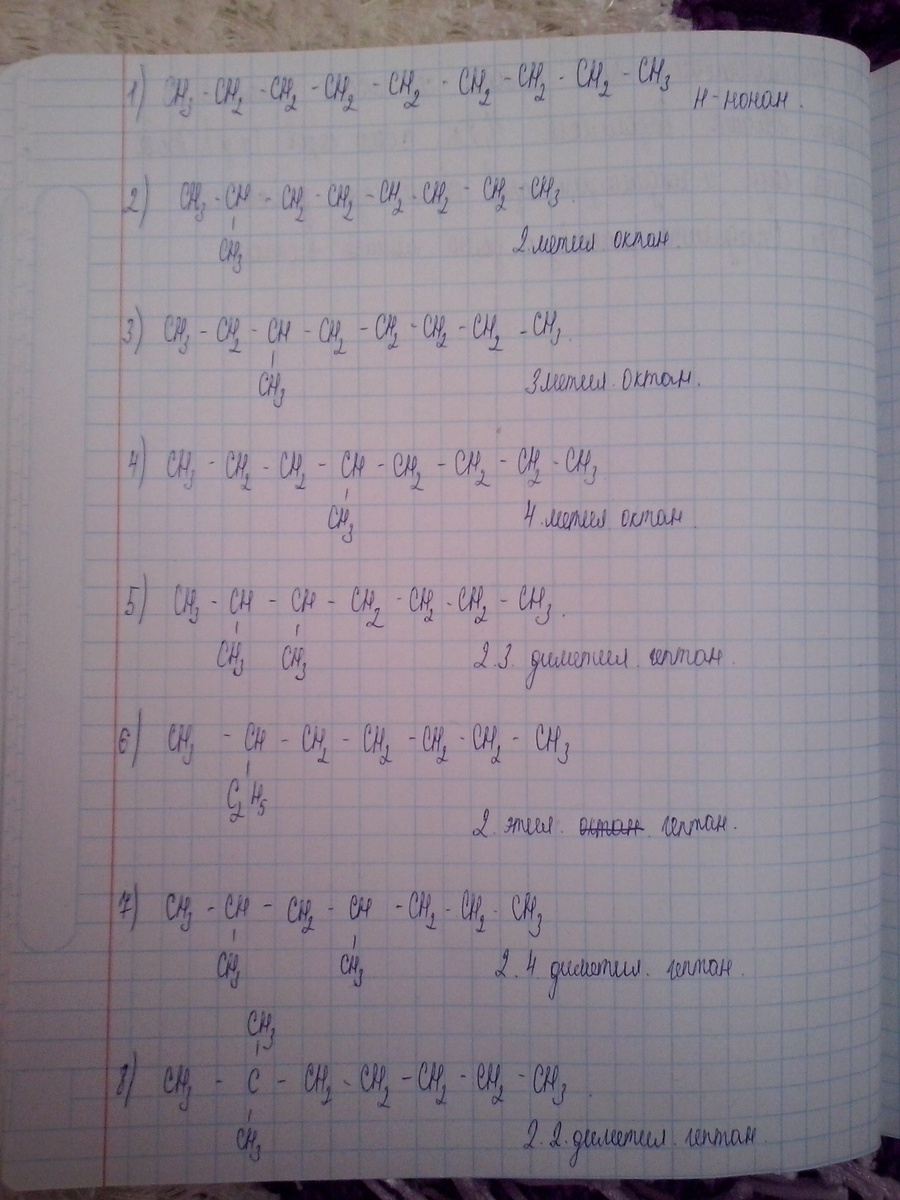 1) CH3 - CH2 - CH2 - CH2 - CH2 - CH2 - CH2 - CH2 - CH3
Н-нонан.
2) CH3 - CH - CH2 - CH2 - CH2 - CH2 - CH2 - CH3.
CH3
2.метил октан.
3) CH3 - CH2 - CH - CH2 - CH2 - CH2 - CH2 - CH3.
CH3
3метил. октан.
4) CH3 - CH2 - CH2 - CH - CH2 - CH2 - CH2 - CH3.
CH3
4.метил октан.
5) CH3 - CH - CH - CH2 - CH2 - CH2 - CH3.
CH3 CH3
2.3. диметил. гептан.
6) CH3 - CH - CH2 - CH2 - CH2 - CH2 - CH3
C2H5
2. этил. октан гептан.
7) CH3 - CH - CH2 - CH - CH2 - CH2 - CH3
CH3 CH3
2.4 диметил. гептан.
CH3
8) CH3 - C - CH2 - CH2 - CH2 - CH2 - CH3.
CH3
2.2.диметил. гептан.